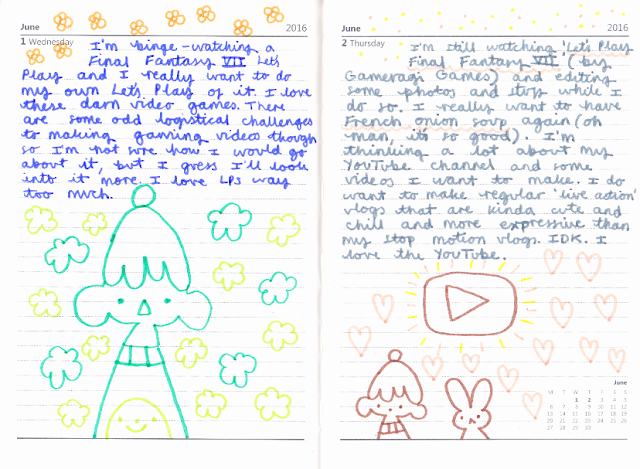 June 2016
1 Wednesday
I'm binge-watching a
Final Fantasy VII Let's
Play and I really want to do
my own Let's Play of it. I love
these darn video games. There
are some odd logistical challenges
to making gaming videos though
so I'm not sure how I would go
about it, but I guess I'll look
into it more. I love LPs way
too much.
June 2016
2 Thursday
I'm still watching 'Let's Play
Final Fantasy VII' (by
Gameragi Games) and editing
some photos and stuff while I
do so. I really want to have
French onion soup again (oh
man, it's so good). I'm
thinking a lot about my
YouTube channel and some
videos I want to make. I do
want to make regular 'live action'
vlogs that are kinda cute and
chill and more expressive than
my stop motion vlogs. IDK. I
love the YouTube.
June
M T W T F S S
1 2 3 4 5
6 7 8 9 10 11 12
13 14 15 16 17 18 19
20 21 22 23 24 25 26
27 28 29 30